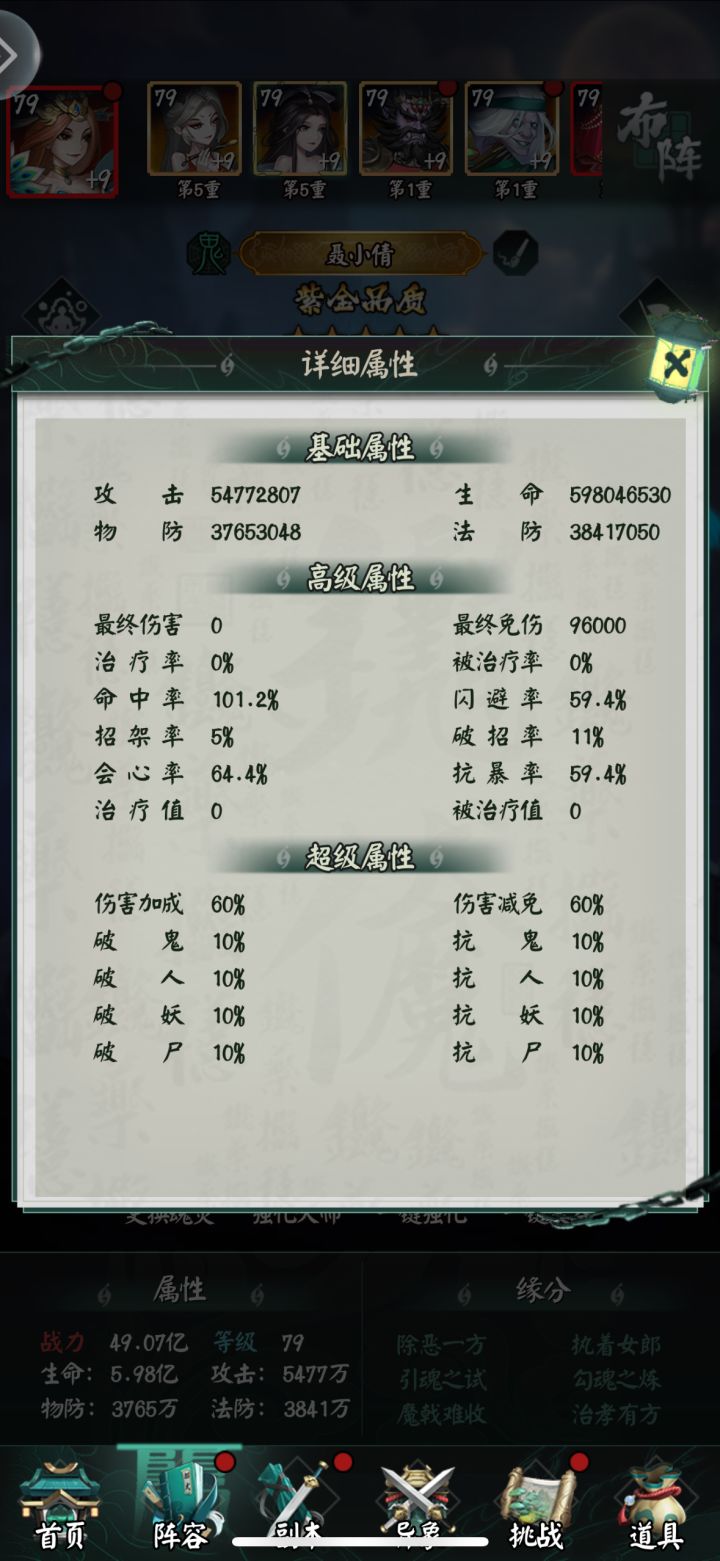 79 79 79 79 79 79
布阵
+9 +9 +9 +9 +9
第5重 第5重 第1重 第1重
鬼 聂小倩
紫金品质
详细属性
基础属性
攻击 54772807 生命 598046530
物防 37653048 法防 38417050
高级属性
最终伤害 0 最终免伤 96000
治疗率 0% 被治疗率 0%
命中率 101.2% 闪避率 59.4%
招架率 5% 破招率 11%
会心率 64.4% 抗暴率 59.4%
治疗值 0 被治疗值 0
超级属性
伤害加成 60% 伤害减免 60%
破鬼 10% 抗鬼 10%
破人 10% 抗人 10%
破妖 10% 抗妖 10%
破尸 10% 抗尸 10%
属性 缘分
战力 49.07亿 等级 79 除恶一方 执着女郎
生命: 5.98亿 攻击: 5477万 引魂之试 勾魂之炼
物防: 3765万 法防: 3841万 魔戟难收 治孝有方
首页 阵容 副本 异象 挑战 道具